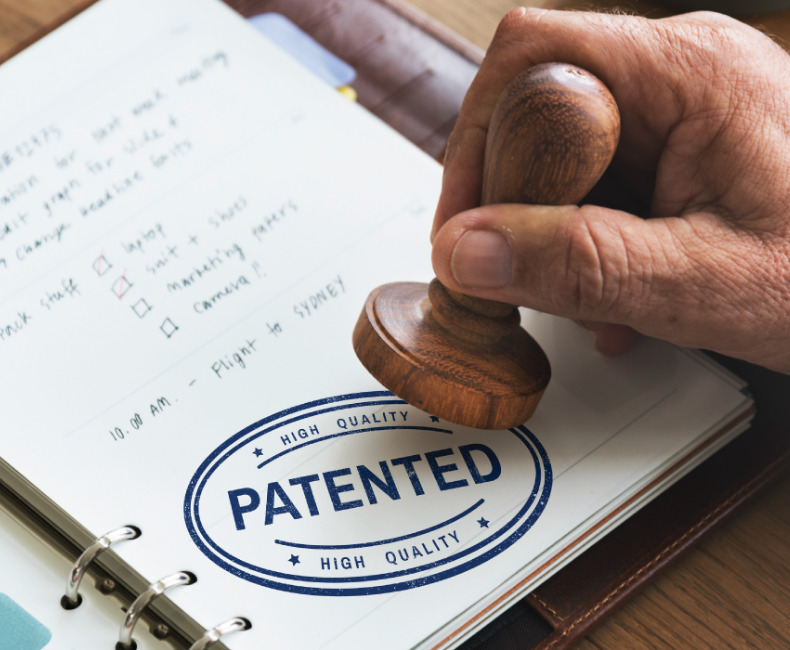 for last week meeting
graph for slide &
change headline fonts
pack stuff
laptop
suit + shoes
marketing papers
camera!!
10.00 AM. - Flight to SYDNEY
HIGH QUALITY
PATENTED
HIGH QUALITY